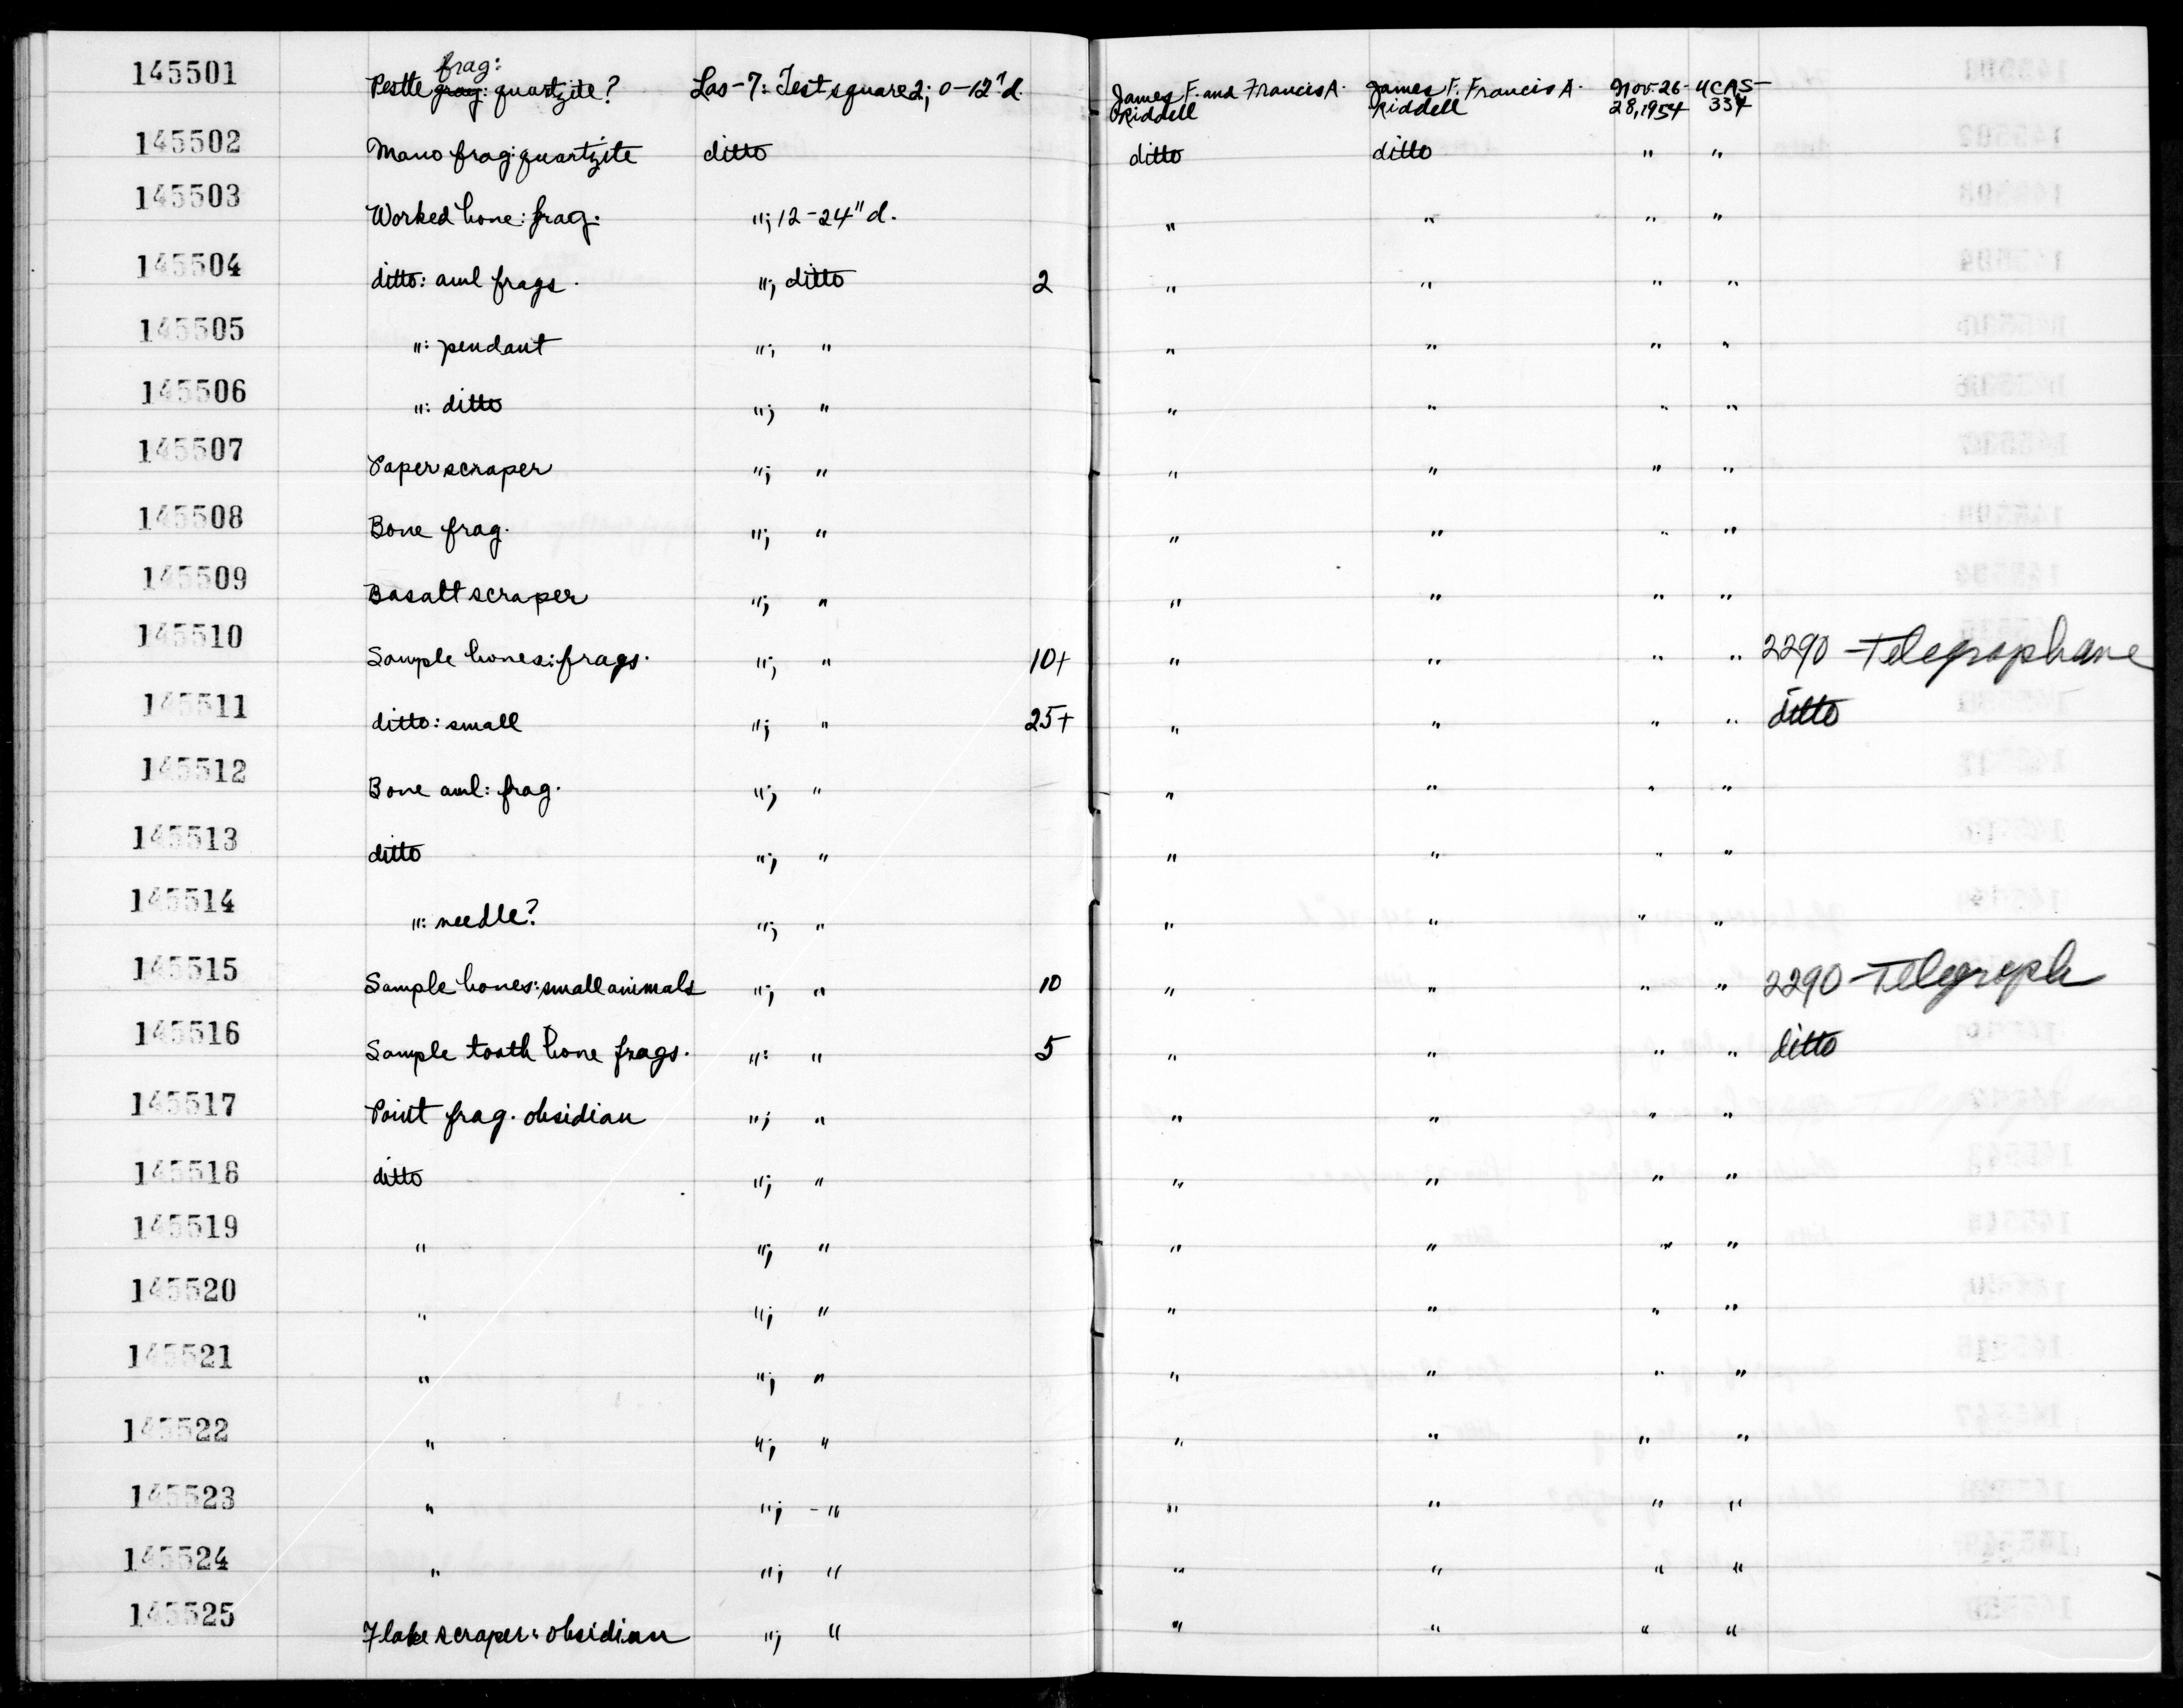 145501 Pestle frag: quartzite? Las-7: Test square 2; 0-12" d. James F. and Francis A. Riddell James F. Francis A. Riddell Nov. 26-28, 1954 UCAS-334
145502 Mano frag: quartzite ditto ditto ditto " "
145503 Worked bone: frag. "; 12-24" d. " " " "
145504 ditto: awl frags. "; ditto 2 " " " "
145505 ": pendant "; " " " " "
145506 ": ditto "; " " " " "
145507 Paper scraper "; " " " " "
145508 Bone frag. "; " " " " "
145509 Basalt scraper "; " " " " "
145510 Sample bones: frags. "; " 10+ " " " " 2290 - Telegraph ave
145511 ditto: small "; " 25+ " " " " ditto
145512 Bone awl: frag. "; " " " " "
145513 ditto "; " " " " "
145514 ": needle? "; " " " " "
145515 Sample bones: small animals "; " 10 " " " " 2290 - Telegraph
145516 Sample tooth bone frags. ": " 5 " " " " ditto
145517 Point frag. obsidian "; " " " " "
145518 ditto "; " " " " "
145519 " "; " " " " "
145520 " "; " " " " "
145521 " "; " " " " "
145522 " "; " " " " "
145523 " "; - " " " " "
145524 " "; " " " " "
145525 Flake scraper: obsidian "; " " " " "